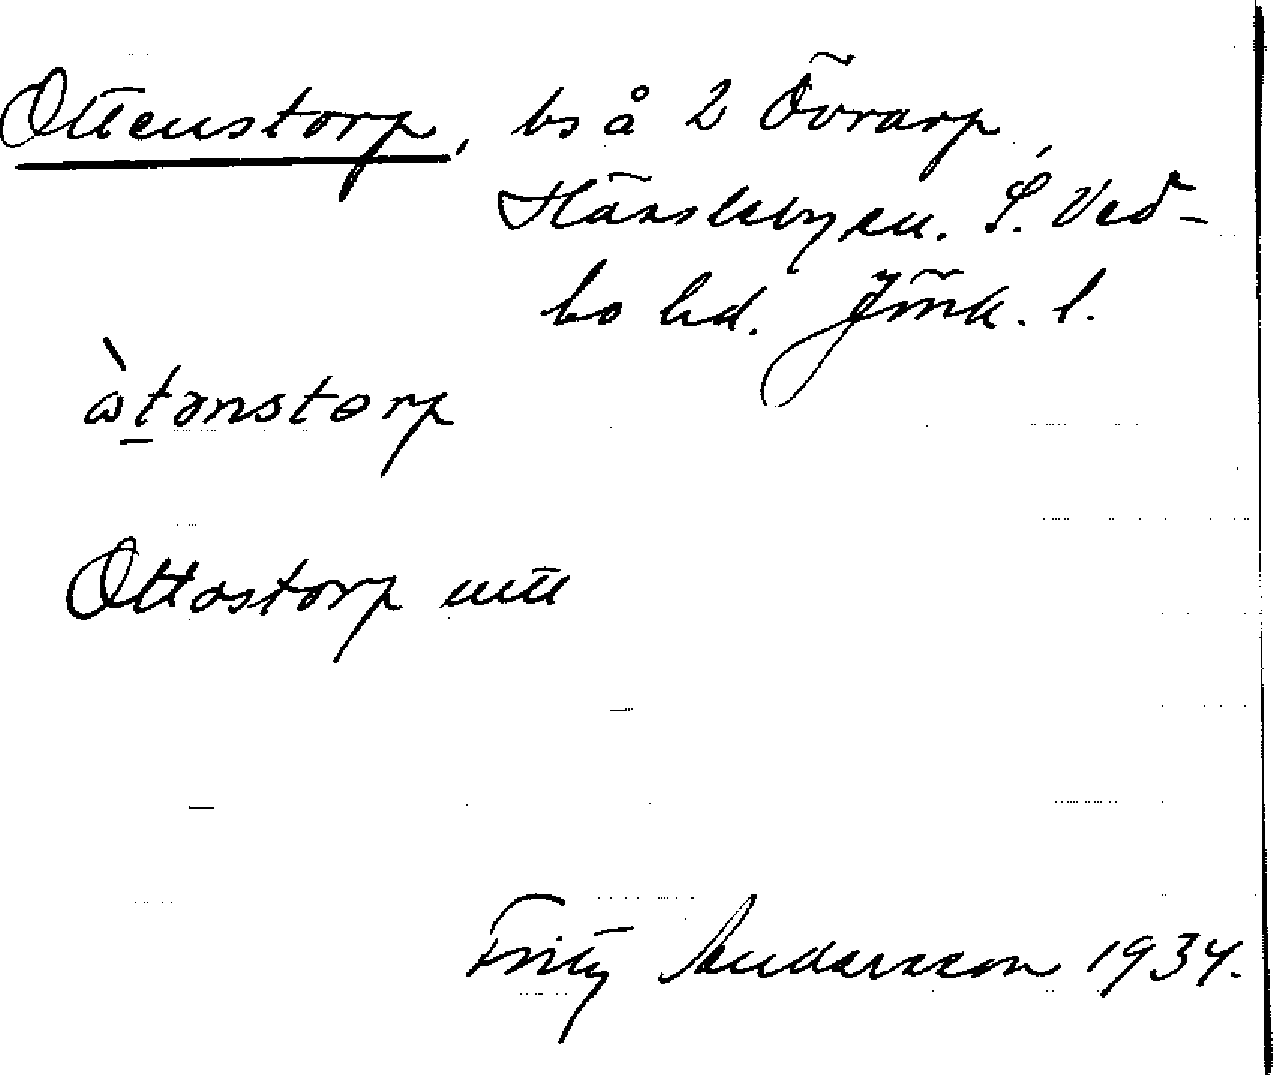 Ottenstorp, bs å 2 Övrarp,
Hässleby sn. S. Ved-
bo hd. Jönk. l.
ὼt̲ənstorp
Ottostorp utt
Fritz Andersson 1934.